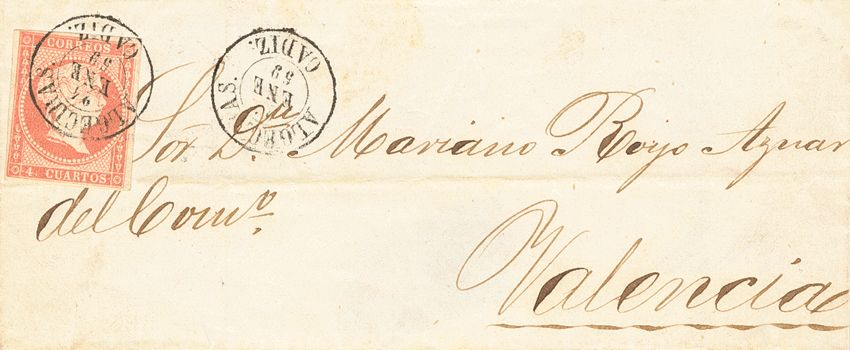 CORREOS
4 CUARTOS
ALGECIRAS.
ENE
59
CADIZ.
ALGECIRAS.
ENE
59
CADIZ.
Sor. Dn. Mariano Royo Aznar
del Como.
Valencia